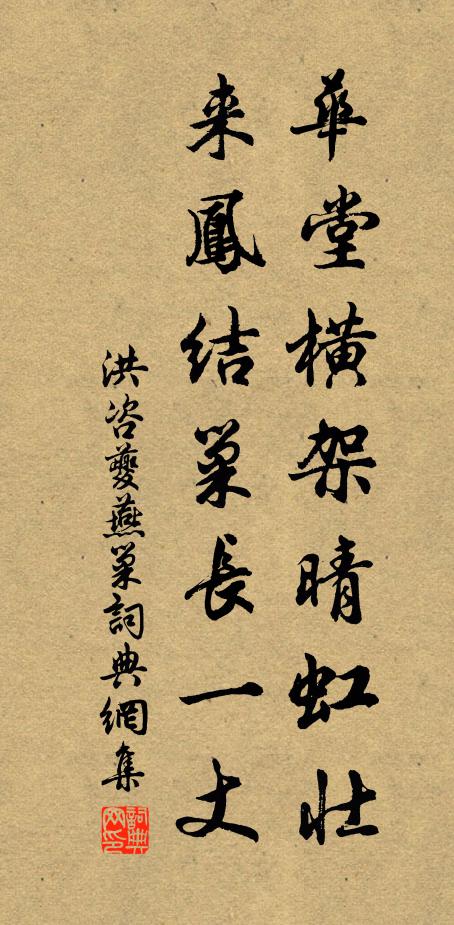 華堂橫架晴虹壯
来鳳結巢長一丈
洪咨夔燕巢詞典網集
詞典
网印